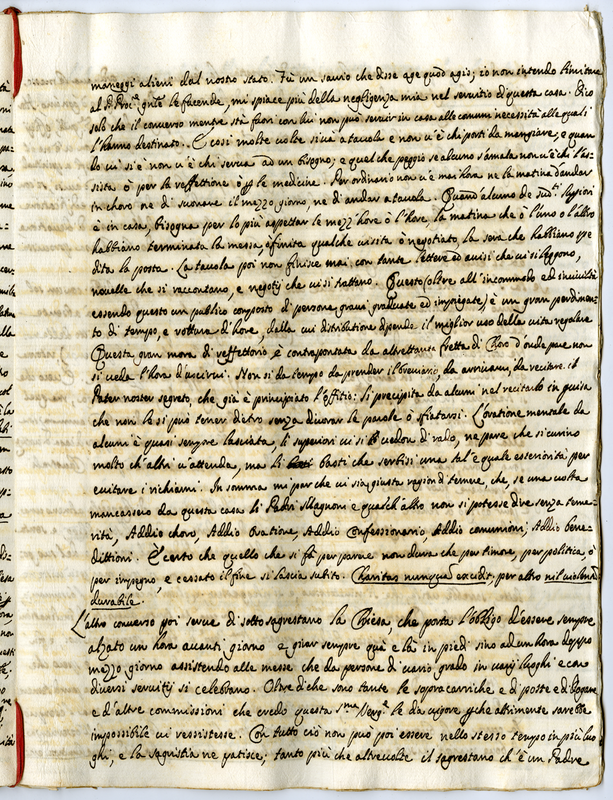 maneggi alieni dal nostro stato. Fù un savio che disse age quod agis; io non intendo limitare
al P. Proc.re gñle le facende, mi spiace più della negligenza mia nel servitio di questa casa. Dico
solo che il converso mentre stà fuori con lui non può servir in casa alle communi necessità alle quali
l'hanno destinato. E cosi molte volte si và a tavola e non v'è chi porti da mangiare, e quan
do vi si è non v'è chi serva ad un bisogno; e quel che peggio se alcuno s'amala non v'è chi l'as-
sista ò per la reffettione ò p le medicine. Per ordinario non v'è mai hora ne la matina d'andar
in choro ne di suonare il mezzo giorno, ne di andar a tavola. Quand'alcuno de sud.ti
è in casa, bisogna per lo più aspettar le mezz'hore ò l'hore, la matina che ò l'uno ò l'altro
habbiano terminata la messa, ò finita qualche visita ò negotiato, la sera che habbiano spe
dita la posta. La tavola poi non finisce mai, con tante lettere ed avisi che vi si leggono,
novelle che si raccontano, e negotij che vi si trattano. Questo (oltre all'incommodo ed inciviltà
essendo questo un publico composto di persone gravi graduate ed impiegate) è un gran perdimen-
to di tempo, e rottura d'hore, dalla cui distributione dipende il miglior uso della vita regolare
Questa gran mora di reffettorio, è contrapontata da altrettanta fretta di Choro d'onde pare non
si veda l'hora d'uscirvi. Non si dà tempo da prender il breviario, da arrivarvi, da recitare il
Pater noster segreto, che già è principiato l'offitio. Si precipita da alcuni nel recitarlo in guisa
che non le si può tener dietro senza divorar le parole ò sfiatarsi. L'oratione mentale da
alcuni è quasi sempre lasciata, li superiori vi si vedon di rado, ne pare che si curino
molto ch'altri v'attenda, ma li basti che serbisi una tal'e quale esteriorità per
evitare i richiami. In somma mi par che vi sia giusta ragion di temere, che, se una volta
mancassero da questa casa li Padri Magnoni e qualch'altro non si potesse dire senza teme-
rità, Addio choro, Addio Oratione, Addio Confessionario, Addio comunioni, Addio bene-
dittioni. È certo che quello che si fà per parere non dura che per timore, per politica, ò
per impegno, e cessato il fine si lascia subito. Charitas nunquã excidit, per altro nil violentũ
durabile.
L'altro converso poi serve di sotto sagrestano la Chiesa, che porta l'obligo d'essere sempre
alzato un hora avanti giorno e girar sempre quà e là in piedi sino ad un hora doppo
mezzo giorno assistendo alle messe che da persone di vario grado in varij luoghi e con
diversi servitij si celebrano. Oltre di che sono tante le sopracarriche e di poste e di
e d'altre commissioni che credo questa s.ma Verg.e le dà vigore p che altrimente sarebbe
impossibile vi ressistesse. Con tutto ciò non può poi essere nello stesso tempo in più luo
ghi, e la sagristia ne patisce; tanto più che altre volte il sagrestano ch'è un Padre